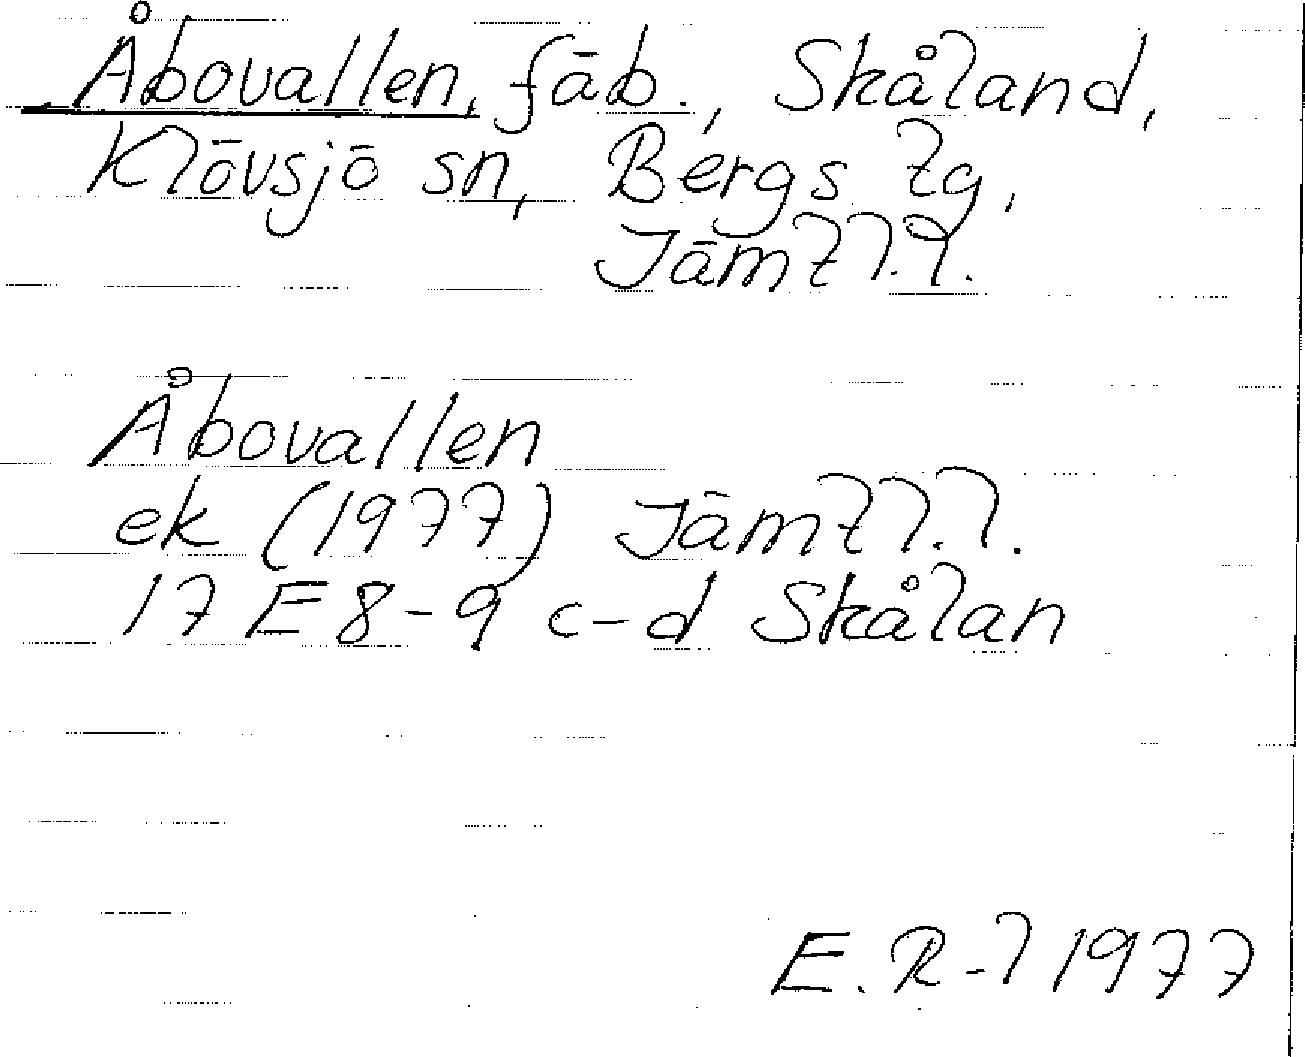 Åbovallen, fäb., Skåland,
Klövsjö sn, Bergs tg,
Jämtl.l.
Åbovallen
ek (1977) Jämtl.l.
17 E 8-9 c-d Skålan
E.R-l 1977